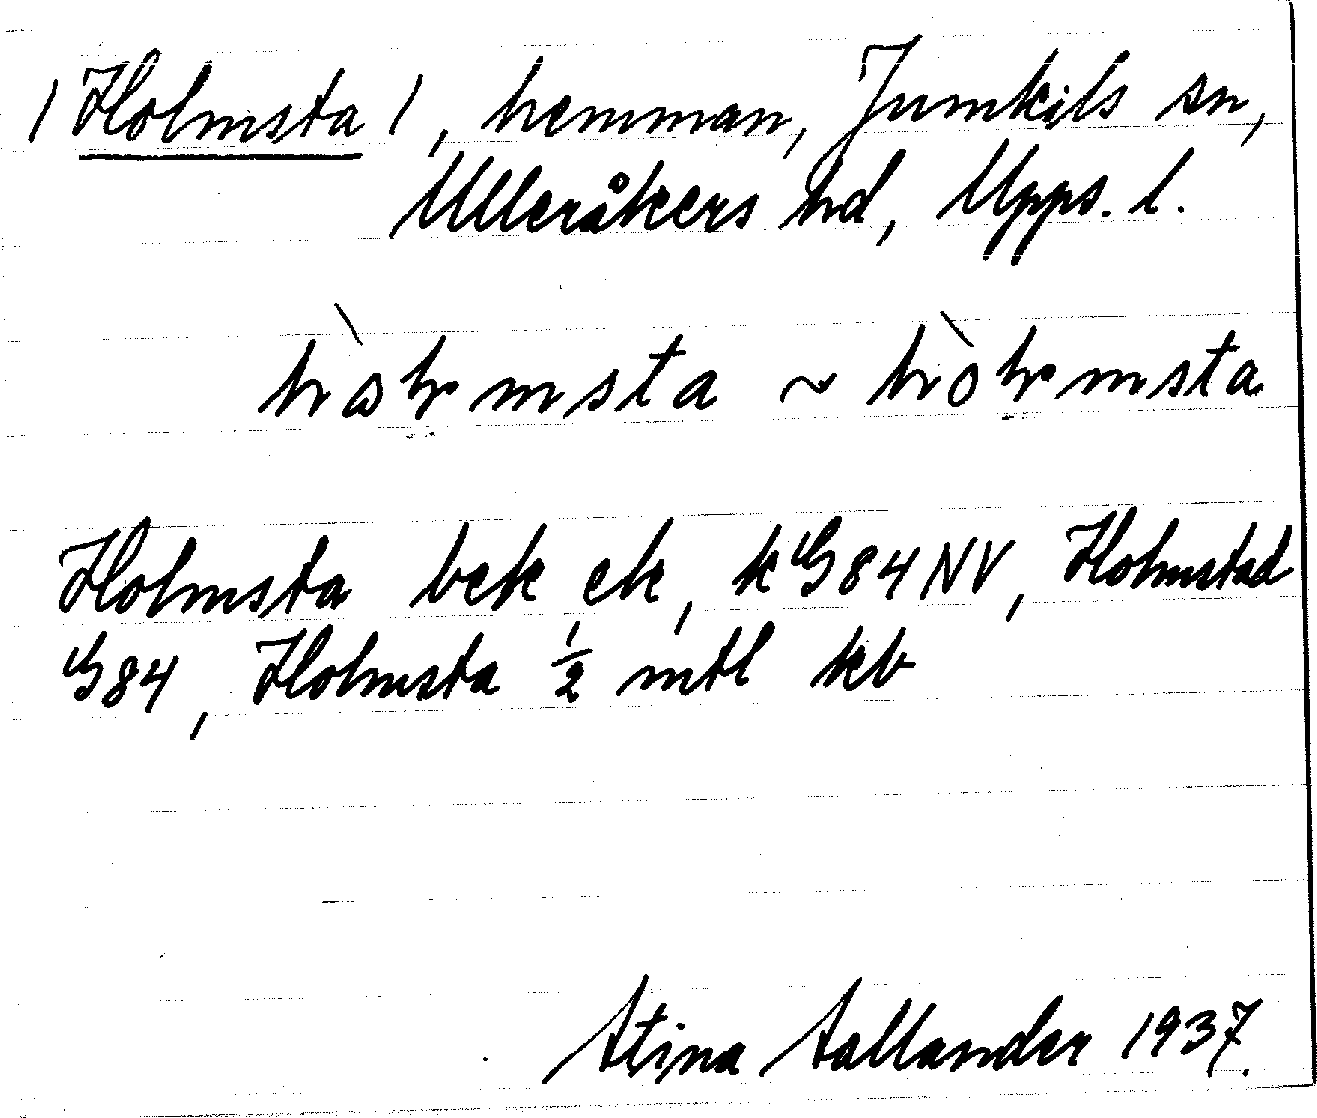 /Holmsta/, hemman, Jumkils sn,
Ulleråkers hd, Upps. l.
Holmsta bek ek, k G84NV, Holmstad
G84, Holmsta 1/2 mtl kb
Stina Sallander 1937.